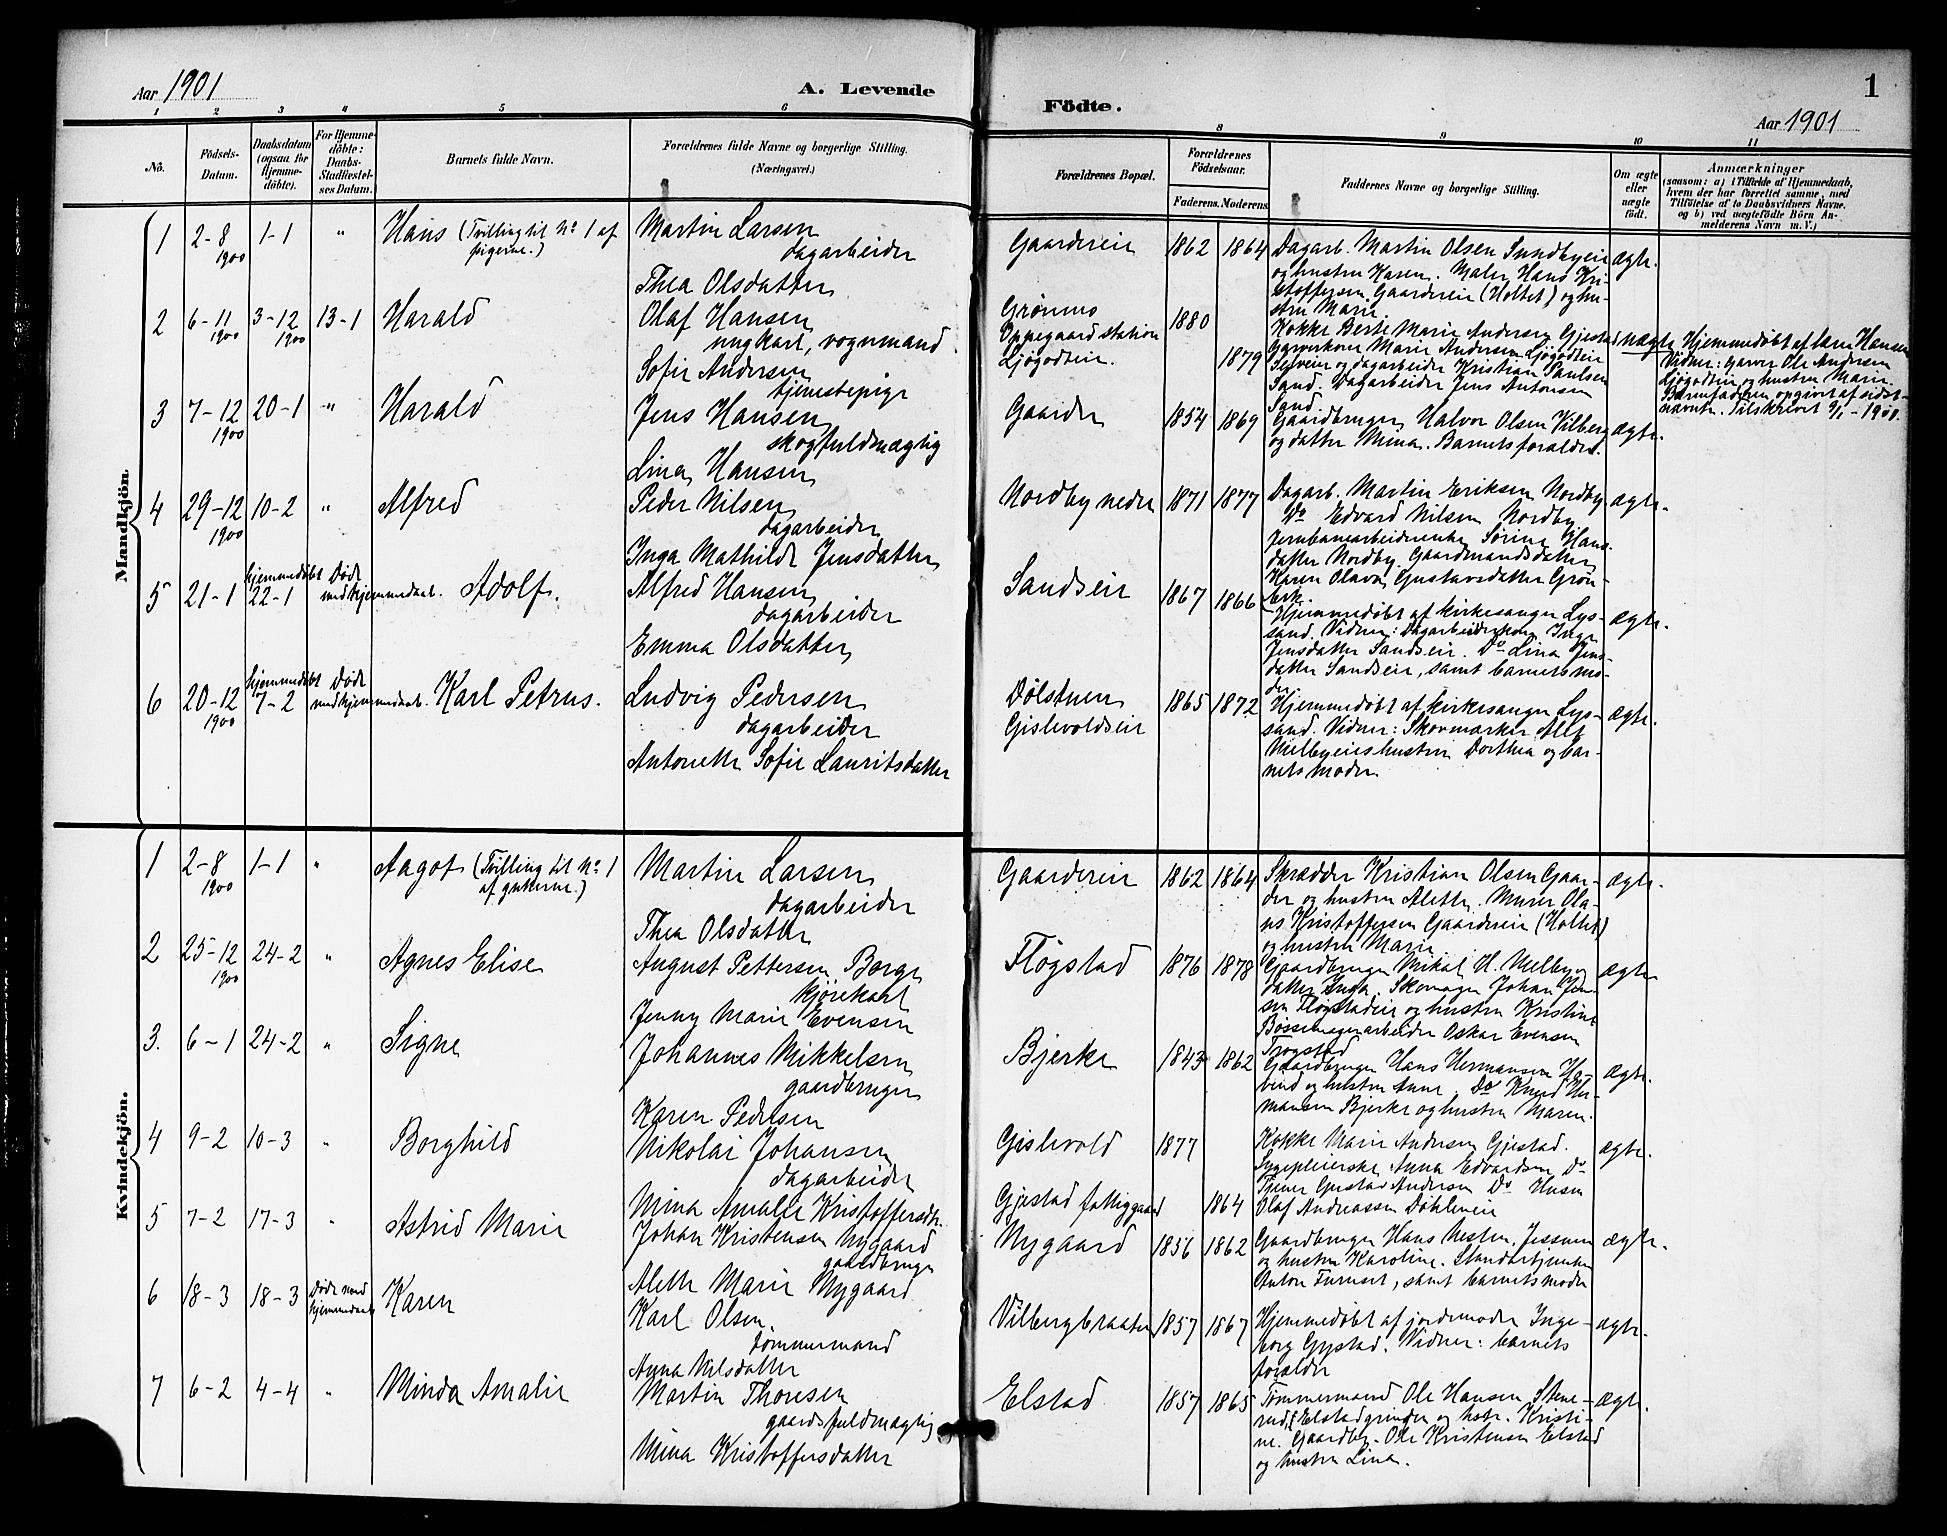 Aar 1901
A. Levende
1 2 3 4 5 6
Nö.
Födsels-
Datum.
Daabsdatum
(ogsaa for
Hjemme-
döbte).
For Hjemme-
döbte:
Daabs-
Stadfæstel-
ses Datum.
Barnets fulde Navn.
Forældrenes fulde Navne og borgerlige Stilling.
(Næringsvei.)
Mandkjön.
1 2-8 1-1 " Hans (Tvilling til No 1 af Martin Larsen
1900 pigerne.) dagarbeider
Thea Olsdatter
2 6-11 3-12 13-1 Harald Olaf Hansen
1900 1900 ungkarl, vognmand.
Sofie Andersen
tjenestepige
3 7-12 20-1 " Harald Jens Hansen
1900 skogfuldmægtig
Lina Hansen
4 29-12 10-2 " Alfred Peder Nilsen
1900 dagarbeider
Inga Mathilde Jensdatter
hjemmedøbt Døde
5 21-1 22-1 med hjemmedaab. Adolf. Alfred Hansen
dagarbeider
Emma Olsdatter
hjemmedøbt Døde
6 20-12 7-2 med hjemmedaab. Karl Petrus. Ludvig Pedersen
1900 dagarbeider
Antonette Sofie Lauritsdatter
Kvindekjön.
1 2-8 1-1 " Aagot (Tvilling til No 1 Martin Larsen
1900 af gutterne.) dagarbeider
Thea Olsdatter
2 25-12 24-2 " Agnes Elise August Pettersen Borge
1900 kjørekarl
Jenny Marie Evensen
3. 6-1 24-2 " Signe Johannes Mikkelsen
gaardbruger
Karen Pedersen
4 9-2 10-3 " Borghild Nikolai Johansen
dagarbeider
Mina Amalie Kristoffersdtr.
5 7-2 17-3 " Astrid Marie Johan Kristensen Nygaard
gaardbruger
Alette Marie Nygaard
6 18-3 18-3 Døde med Karen Karl Olsen
hjemmedaab tømmermand
Anna Nilsdatter
7 6-2 4-4 " Minda Amalie Martin Thoresen
gaardsfuldmægtig
Mina Kristoffersdatter
1
Födte.
Aar 1901
8 9 10 11
Forældrenes Bopæl.
Forældrenes
Födselsaar.
Faderens. Moderens.
Faddernes Navne og borgerlige Stilling.
Om ægte
eller
uægte
födt.
Anmærkninger
(saasom: a) i Tilfælde af Hjemmedaab,
hvem der har forrettet samme, med
Tilföielse af to Daabsvidners Navne.
og b) ved uægtefödte Börn An-
melderens Navn m.V.)
Gaardereie 1862 1864 Dagarb. Martin Olsen Sundbyeie ægte.
og hustru Karen. Maler Hans Kri-
stoffersen Gaardereie (Holtet) og hu-
stru Marie.
Grønmo
Oppegaard station 1880
Ljøgodteie. 1879
Kokke Berte Marie Andersen Gjestad uægte
Garverkone Marie Andersen Ljøgodteie
Selveier og dagarbeider Kristian Paulsen
Sand. Dagarbeider Jens Antonsen
Sand.
Hjemmedøbt af lærer Hansen
Vidner: garver Ole Andersen
Ljøgodteie og hustru Marie.
Barnefaderen opgivet af sidst-
nævnte. Tilskrevet 9/1-1901.
Gaarder 1854 1869 Gaardbruger Halvor Olsen Vilberg ægte.
og datter Mina. Barnets forældre.
Nordby nedre 1871 1877 Dagarb. Martin Eriksen Nordby ægte.
Do Edvard Nilsen Nordby
Jernbanearbeiderenke Sørine Hans-
datter Nordby. Gaardmandsdatter
Karen Olava Gustavsdatter Grøn-
berk.
Sandseie 1867 1866 Hjemmedøbt af kirkesanger Lys- ægte.
sand. Vidner: Dagarbeiderkone Inga
Jensdatter Sandseie. Do Lina Jens-
datter Sandseie, samt barnets mo-
der
Dølstuen 1865 1872 Hjemmedøbt af kirkesanger Lys- ægte.
Gislevoldseie sand. Vidner: Skovmærker Alet
Melbyeieshustru Dorthea og bar-
nets moder.
Gaardereie 1862 1864 Skrædder Kristian Olsen Gaar- ægte.
der og hustru Alette. Murer Ola-
us Kristoffersen Gaardereie (Holtet)
og hustru Marie
Fløgstad 1876 1878 Gaardbruger Mikal H. Melby og ægte
datter Inga. Skomager Johan Jen-
sen Fløgstadeie og hustru Kristine
Bøssemagerarbeider Oskar Evensen
Trøgstad
Bjerke 1843 1862 Gaardbruger Hans Hermansen Ha- ægte.
vind og hustru Anne. Do Knud Her-
mansen Bjerke og hustru Maren.
Gislevold 1877 Kokke Marie Andersen Gjestad. ægte.
Sygepleierske Anna Edvardsen Do
Tjener Gustav Andersen Do Husm
Gjestad fattiggaard 1864 Olaf Andreassen Døhleneie
Nygaard 1856 1862 Gaardbruger Hans Nesten, Jessnes ægte.
og hustru Karoline. Standartjunker
Anton Furuset, samt barnets moder
Vilbergbraaten 1857 1867 Hjemmedøbt af jordemoder Inge- ægte.
borg Gjestad. Vidner: barnets
forældre
Elstad 1857 1865 Tømmermand Ole Hansen Stene- ægte.
rud, Elstadgrinden og hstr. Kristi-
ne. Gaardbr. Ole Kristensen Elstad
og hustru Lina.